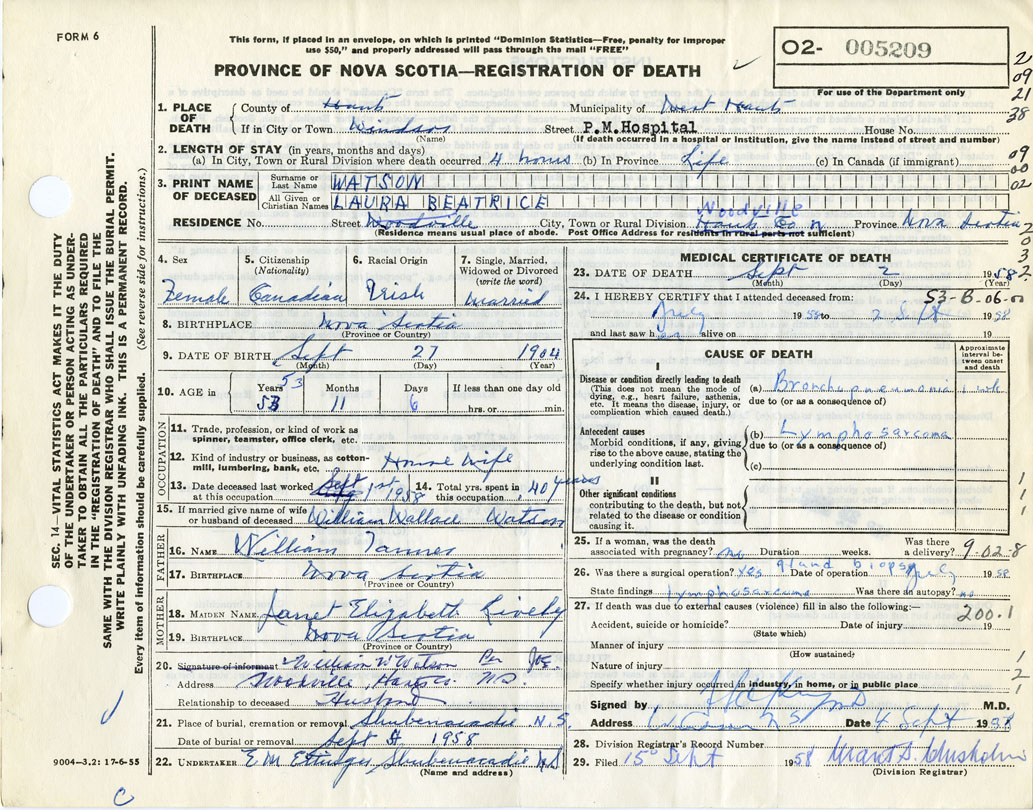 FORM 6
This form, if placed in an envelope, on which is printed "Dominion Statistics—Free, penalty for improper
use $50," and properly addressed will pass through the mail "FREE"
O2- 005209
PROVINCE OF NOVA SCOTIA—REGISTRATION OF DEATH
For use of the Department only
2
09
21
38
1. PLACE OF DEATH
County of Hants Municipality of West Hants
If in City or Town Windsor Street P.M.Hospital House No.
(Name) (If death occurred in a hospital or institution, give the name instead of street and number)
2. LENGTH OF STAY (in years, months and days)
(a) In City, Town or Rural Division where death occurred 4 hours (b) In Province Life (c) In Canada (if immigrant)
09
00
02
3. PRINT NAME OF DECEASED
Surname or Last Name WATSON
All Given or Christian Names LAURA BEATRICE
Woodville
RESIDENCE No. Street Woodville City, Town or Rural Division Hants Co Province Nova Scotia
(Residence means usual place of abode. Post Office Address for residents in rural parts not sufficient)
2
0
3
2
4. Sex
Female
5. Citizenship (Nationality)
Canadian
6. Racial Origin
Irish
7. Single, Married, Widowed or Divorced (write the word)
Married
8. BIRTHPLACE Nova Scotia
(Province or Country)
9. DATE OF BIRTH Sept 27 1904
(Month) (Day) (Year)
10. AGE in
Years 53 53
Months 11
Days 6
If less than one day old
hrs. or min.
OCCUPATION
11. Trade, profession, or kind of work as
spinner, teamster, office clerk, etc.
12. Kind of industry or business, as cotton-
mill, lumbering, bank, etc. House Wife
13. Date deceased last worked at this occupation Sept 1st 1958
14. Total yrs. spent in this occupation 40 years
15. If married give name of wife
or husband of deceased William Wallace Watson
FATHER
16. NAME William Tanner
17. BIRTHPLACE Nova Scotia
(Province or Country)
MOTHER
18. MAIDEN NAME Janet Elizabeth
19. BIRTHPLACE Nova Scotia
(Province or Country)
20. Signature of informant William W Watson Per
Address Woodville, Hants Co. N.S.
Relationship to deceased Husband
21. Place of burial, cremation or removal Shubenacadie N.S.
Date of burial or removal Sept 4 1958
22. UNDERTAKER E M Shubenacadie N.S
(Name and address)
MEDICAL CERTIFICATE OF DEATH
23. DATE OF DEATH Sept 2 1958
(Month) (Day) (Year)
24. I HEREBY CERTIFY that I attended deceased from: 53-B-06-0
July 1958 to 2 Sept 1958
and last saw her alive on 19
CAUSE OF DEATH
Approximate interval between onset and death
I
Disease or condition directly leading to death
(This does not mean the mode of dying, e.g., heart failure, asthenia, etc. It means the disease, injury, or complication which caused death.)
(a) Bronchopneumonia 1 wk
due to (or as a consequence of)
Antecedent causes
Morbid conditions, if any, giving rise to the above cause, stating the underlying condition last.
(b) Lymphosarcoma
due to (or as a consequence of)
(c)
II
Other significant conditions
contributing to the death, but not related to the disease or condition causing it.
1
1
1
25. If a woman, was the death
associated with pregnancy? no Duration weeks. Was there a delivery? 9-02-8
26. Was there a surgical operation? yes gland biopsy Date of operation July 1958
State findings lymphosarcoma Was there an autopsy? no
27. If death was due to external causes (violence) fill in also the following:— 200.1
Accident, suicide or homicide? Date of injury 19
(State which)
Manner of injury
(How sustained)
Nature of injury
Specify whether injury occurred in industry, in home, or in public place
1
2
1
Signed by M.D.
Address Windsor N S Date 4 Sept 1958
28. Division Registrar's Record Number
29. Filed 15th Sept 1958 Grant S. Chisholm
(Division Registrar)
SEC. 14—VITAL STATISTICS ACT MAKES IT THE DUTY
OF THE UNDERTAKER OR PERSON ACTING AS UNDER-
TAKER TO OBTAIN ALL THE PARTICULARS REQUIRED
IN THE "REGISTRATION OF DEATH" AND TO FILE THE
SAME WITH THE DIVISION REGISTRAR WHO SHALL ISSUE THE BURIAL PERMIT.
WRITE PLAINLY WITH UNFADING INK. THIS IS A PERMANENT RECORD.
Every item of information should be carefully supplied. (See reverse side for instructions.)
9004—3.2: 17-6-55